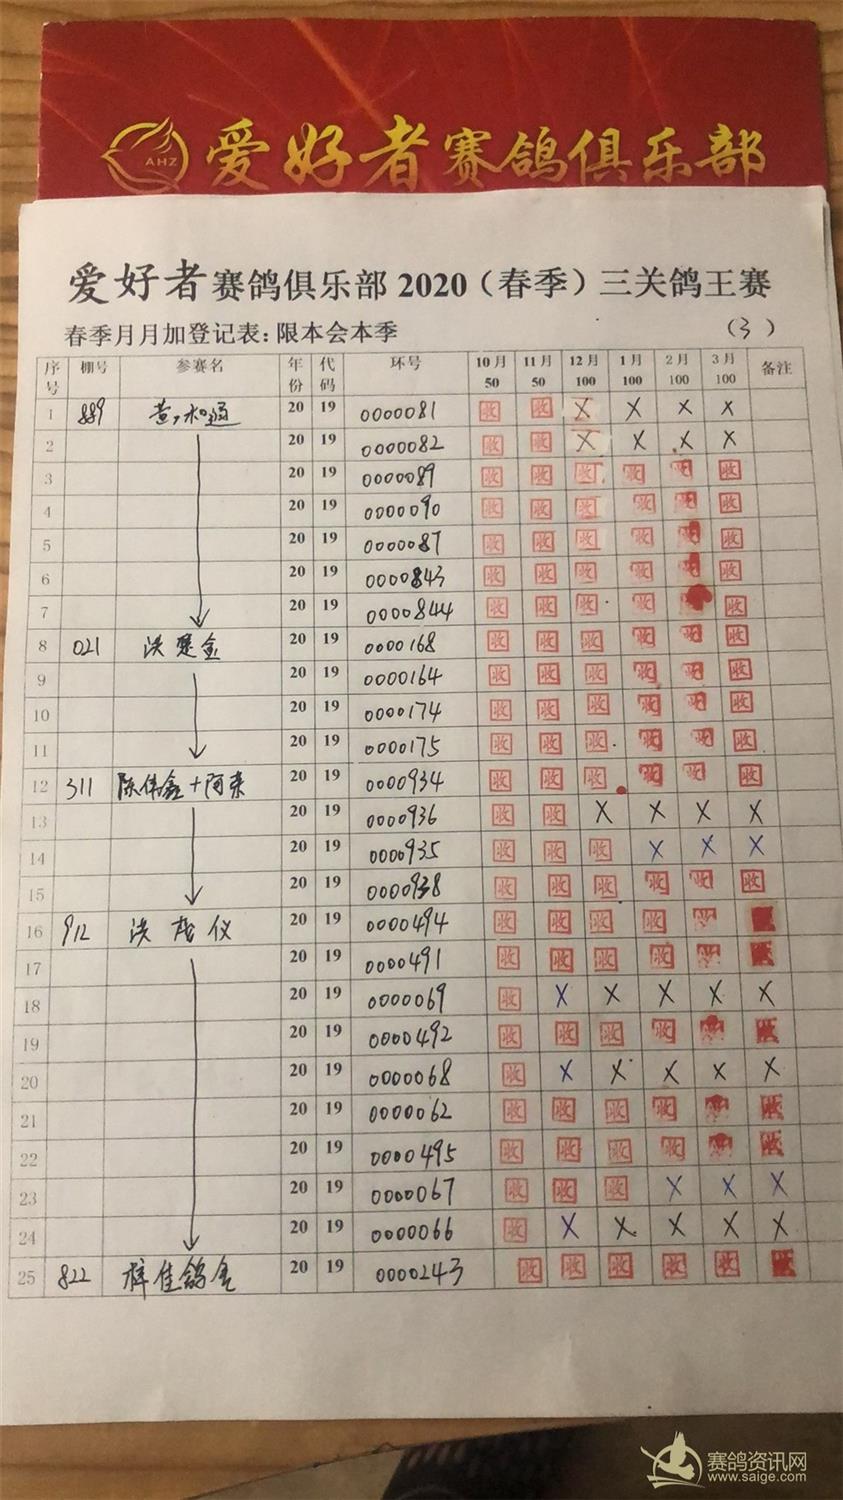 AHZ 爱好者赛鸽俱乐部
爱好者赛鸽俱乐部2020(春季)三关鸽王赛
春季月月加登记表:限本会本季 (3)
序号 棚号 参赛名 年份 代码 环号 10月50 11月50 12月100 1月100 2月100 3月100 备注
1 889 20 19 0000081 收 收 X X X X
2 20 19 0000082 收 收 X X X X
3 20 19 0000089 收 收 收 收 收 收
4 20 19 0000090 收 收 收 收 收 收
5 20 19 0000087 收 收 收 收 收 收
6 20 19 0000843 收 收 收 收 收 收
7 20 19 0000844 收 收 收 收 收 收
8 021 洪楚金 20 19 0000168 收 收 收 收 收 收
9 20 19 0000164 收 收 收 收 收 收
10 20 19 0000174 收 收 收 收 收 收
11 20 19 0000175 收 收 收 收 收 收
12 311 陈伟鑫+阿荣 20 19 0000934 收 收 收 收 收 收
13 20 19 0000936 收 收 X X X X
14 20 19 0000935 收 收 收 X X X
15 20 19 0000938 收 收 收 收 收 收
16 912 洪茂仪 20 19 0000494 收 收 收 收 收 收
17 20 19 0000491 收 收 收 收 收 收
18 20 19 0000069 收 X X X X X
19 20 19 0000492 收 收 收 收 收 收
20 20 19 0000068 收 X X X X X
21 20 19 0000062 收 收 收 收 收 收
22 20 19 0000495 收 收 收 收 收 收
23 20 19 0000067 收 收 收 X X X
24 20 19 0000066 收 X X X X X
25 822 梓佳鸽舍 20 19 0000243 收 收 收 收 收 收
赛鸽资讯网
www.saige.com